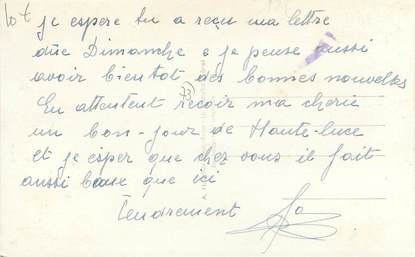 je espere tu a reçu ma lettre
due Dimanche e je pense aussi
avoir bientot des bonnes nouvelles
En attentent recoir ma cherie
un bon-jour de Haute-luce
et je esper que chez vous il fait
aussi baux que ici
Tendrement